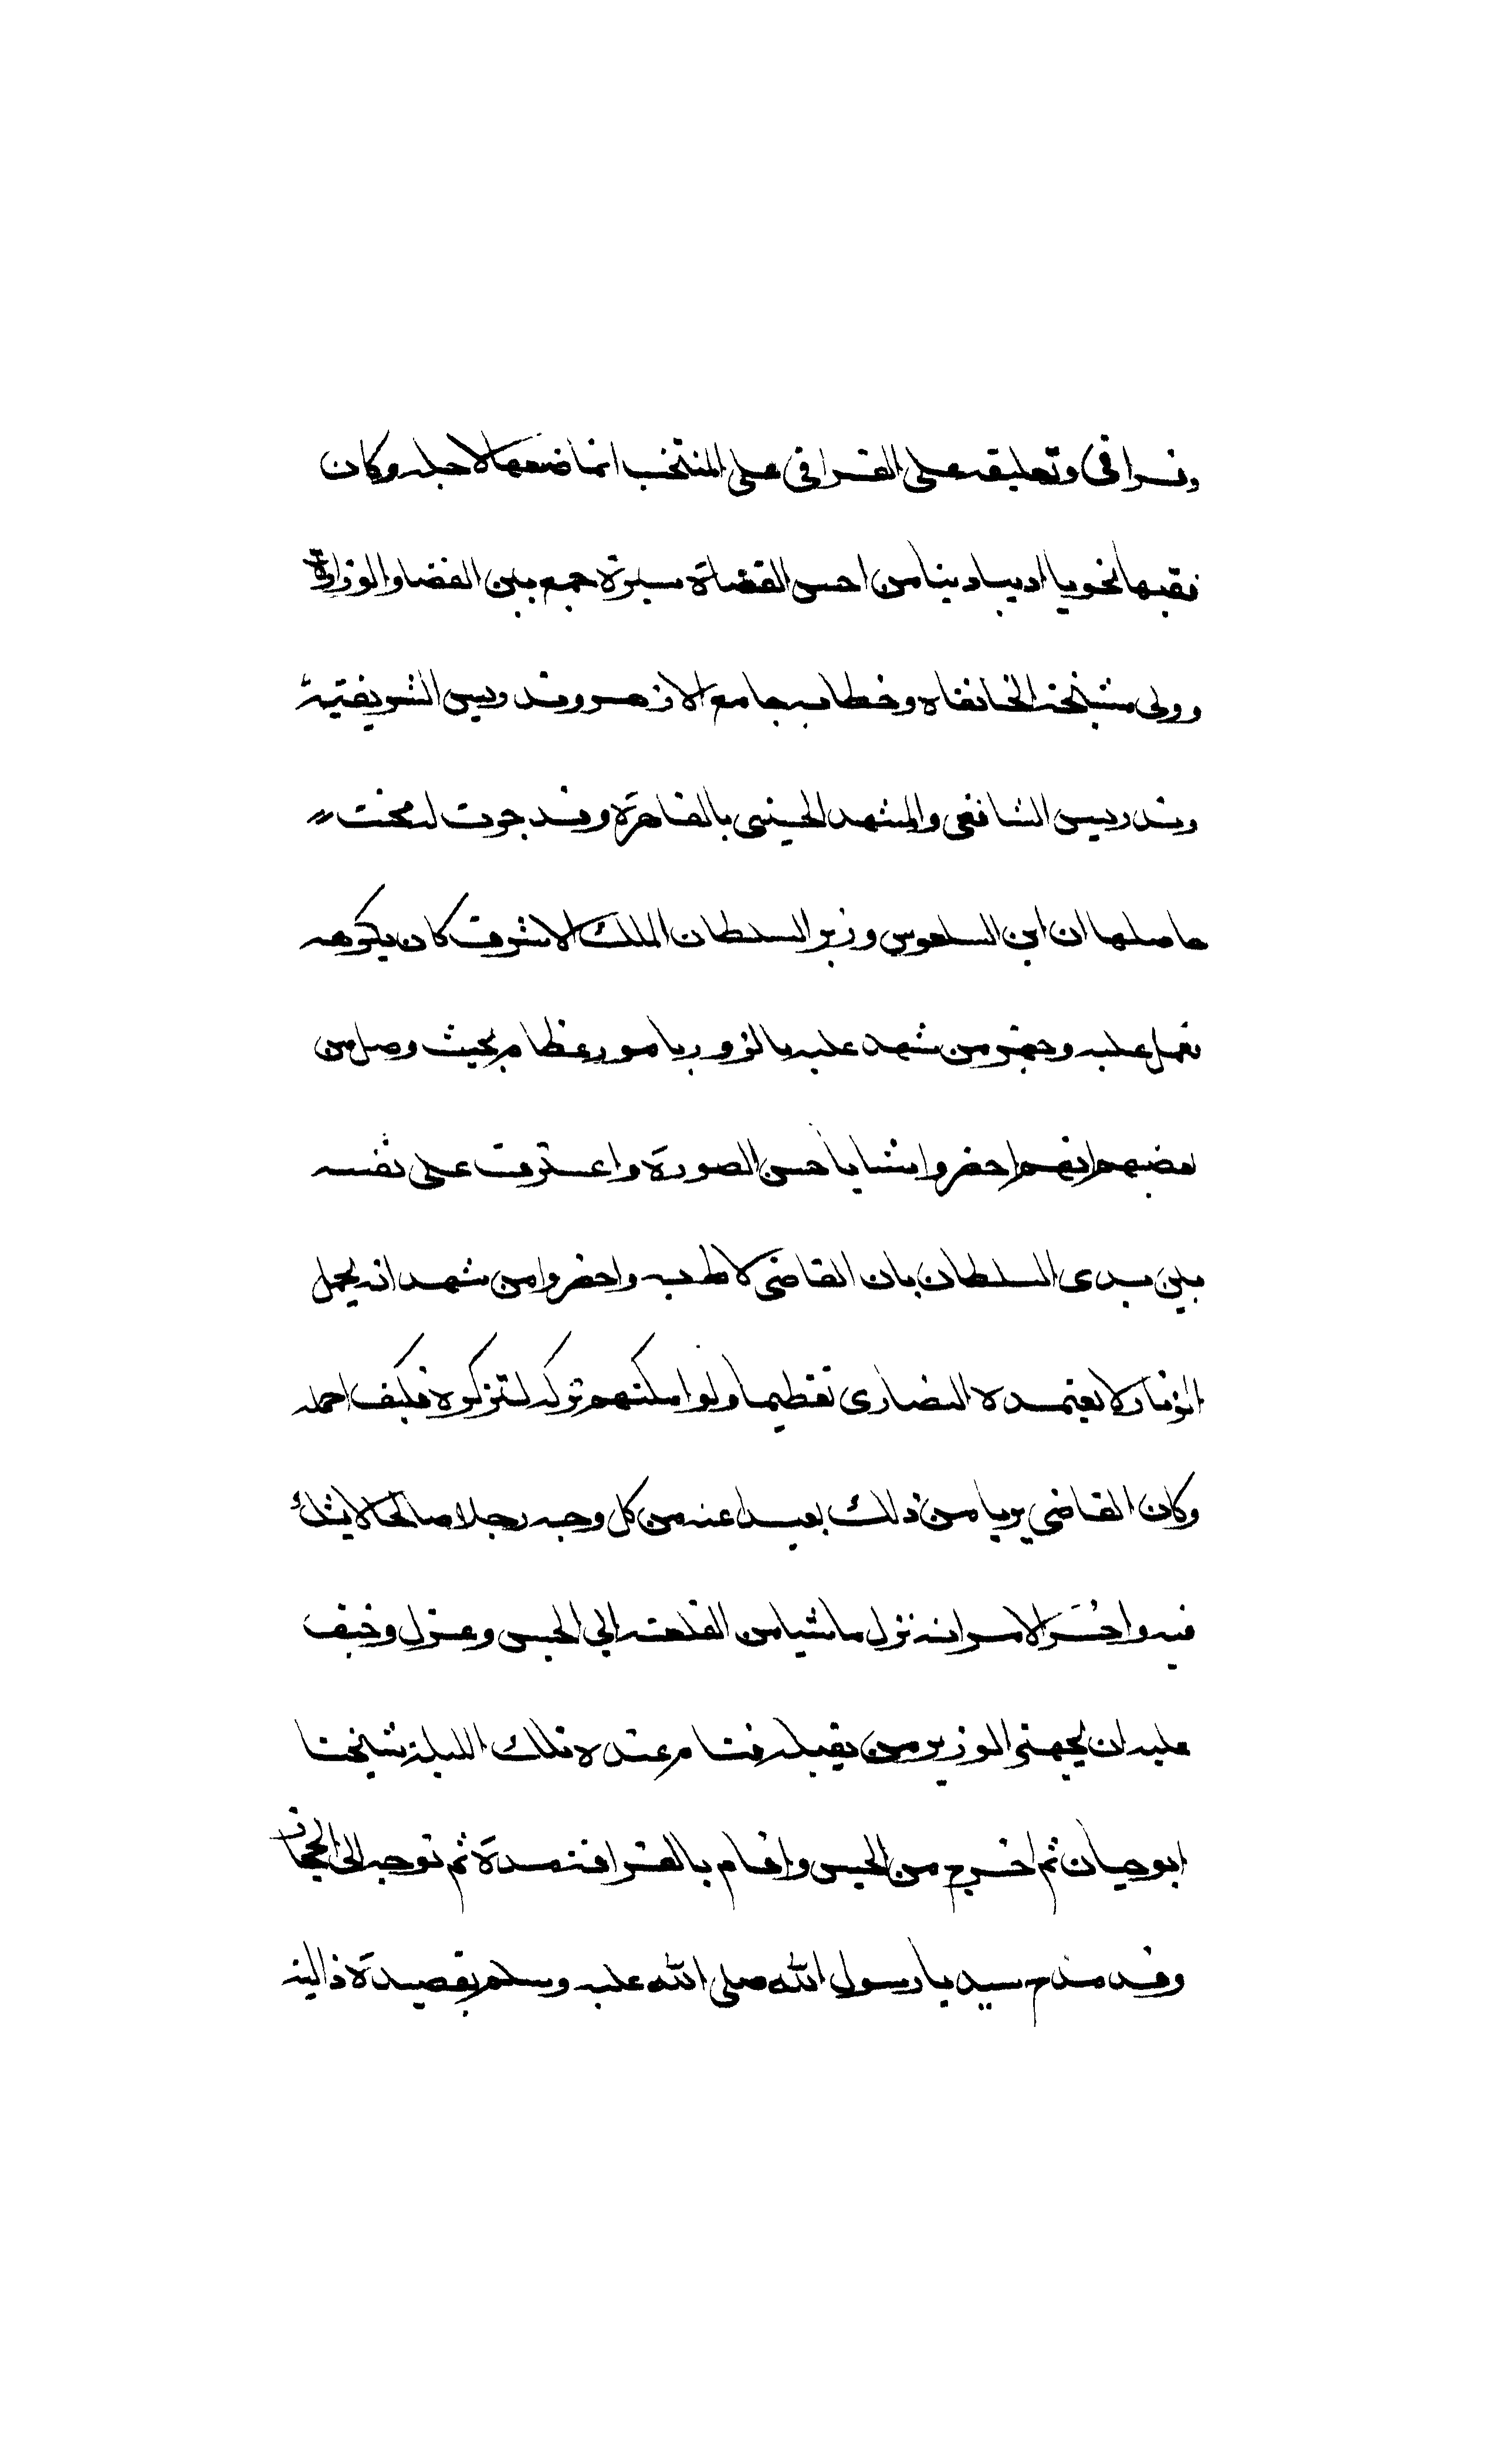 وقرا في وتعليقه على القرافي على المنتخب انما ضعها لاجله وكان
فقيها نحويا اديبا دينا من احسن القضاة سيرة جمع بين القضا والوزارة
وولى مشيخة الخانقاه وخطابه جامع الازهر وتدريس الشريفية
وتدريس الشافعي والمشهد الحسيني بالقاهرة وقد جرت له محنت
حاصلها ان ابن السلعوس وزير السلطان الملك الاشرف كان يكرهه
فعمل عليه وجهز من شهد عليه بالزور بامور عظام بحيث وصل من
بعضهم انهم احضروا شابا حسن الصورة واعترف على نفسه
بين يدى السلطان بان القاضي لاط به واحضروا من شهد انه يحمل
الزنار لا يعتمده النصارى تعظيما ولو امكنهم تركه لتركوه فكيف احمله
وكان القاضي بريا من ذلك بعيدا عنه من كل وجه رجلا صالحا لا يشك
فيه واخر الامر انه نزل ماشيا من القلعة الى الحبس وعزل وخيف
عليه ان يجهز الوزير من يقتله فنام عنده تلك الليلة شيخنا
ابو حيان ثم اخرج من الحبس واقام بالقرافة مدة ثم توجه الى الحجاز
وقد مدح سيدنا رسول الله صلى الله عليه وسلم بقصيدة دالية